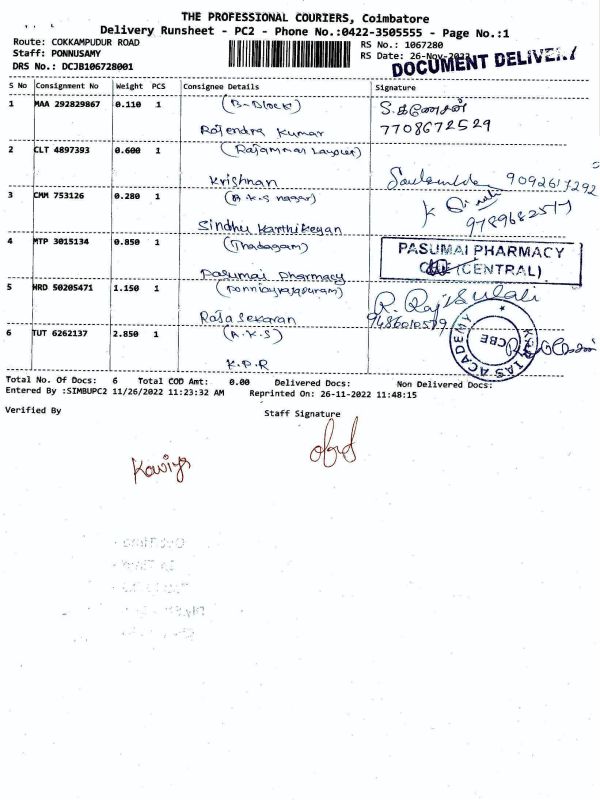 THE PROFESSIONAL COURIERS, Coimbatore
Delivery Runsheet - PC2 - Phone No.:0422-3505555 - Page No.:1
Route: COKKAMPUDUR ROAD
RS No.: 1067280
Staff: PONNUSAMY
RS Date: 26-Nov-2022
DRS No.: DCJB106728001
DOCUMENT DELIVERY
S No Consignment No Weight PCS Consignee Details Signature
1 MAA 292829867 0.110 1 (B-Block) S.கணேசன்
Rajendra Kumar 7708672529
2 CLT 4897393 0.600 1 (Rajammal Layout)
Krishnan 9092617292
3 CMM 753126 0.280 1 (A.K.S nagar) K
Sindhu Karthikeyan 9789682517
4 MTP 3015134 0.850 1 (Thadagam) PASUMAI PHARMACY
(CENTRAL)
Pasumai Pharmacy
5 HRD 50205471 1.150 1 (Ponniayrajapuram) R.
Raja Sekaran
6 TUT 6262137 2.850 1 (A.K.S) IAS ACADEMY CBE
K.P.R
Total No. Of Docs: 6 Total COD Amt: 0.00 Delivered Docs: Non Delivered Docs:
Entered By :SIMBUPC2 11/26/2022 11:23:32 AM Reprinted On: 26-11-2022 11:48:15
Verified By Staff Signature
Kawiya